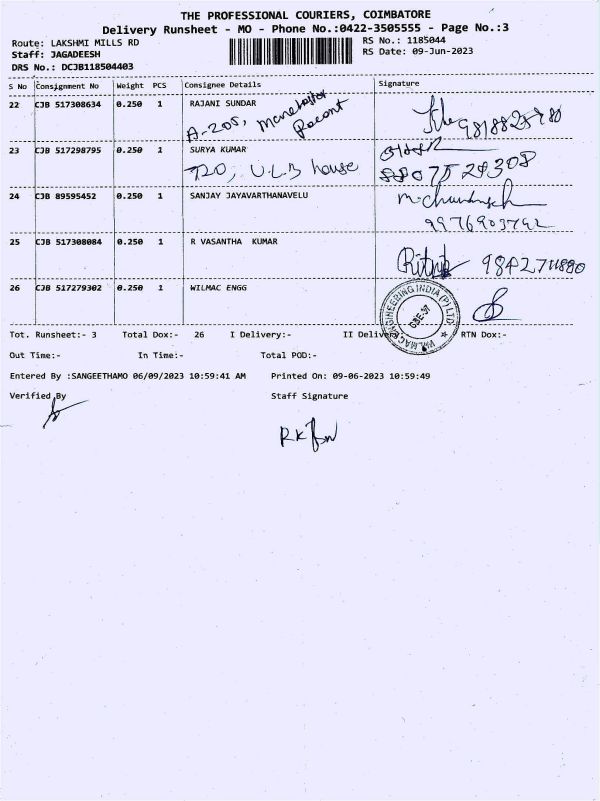 THE PROFESSIONAL COURIERS, COIMBATORE
Delivery Runsheet - MO - Phone No.:0422-3505555 - Page No.:3
Route: LAKSHMI MILLS RD RS No.: 1185044
Staff: JAGADEESH RS Date: 09-Jun-2023
DRS No.: DCJB118504403
S No Consignment No Weight PCS Consignee Details Signature
22 CJB 517308634 0.250 1 RAJANI SUNDAR
A-205,
23 CJB 517298795 0.250 1 SURYA KUMAR
720, U.L.B house 88075 29308
24 CJB 89595452 0.250 1 SANJAY JAYAVARTHANAVELU
9976903792
25 CJB 517308084 0.250 1 R VASANTHA KUMAR
26 CJB 517279302 0.250 1 WILMAC ENGG
ENGINEERING INDIA (P) LTD
CBE-37
Tot. Runsheet:- 3 Total Dox:- 26 I Delivery:- II Delive RTN Dox:-
Out Time:- In Time:- Total POD:-
Entered By :SANGEETHAMO 06/09/2023 10:59:41 AM Printed On: 09-06-2023 10:59:49
Verified By Staff Signature